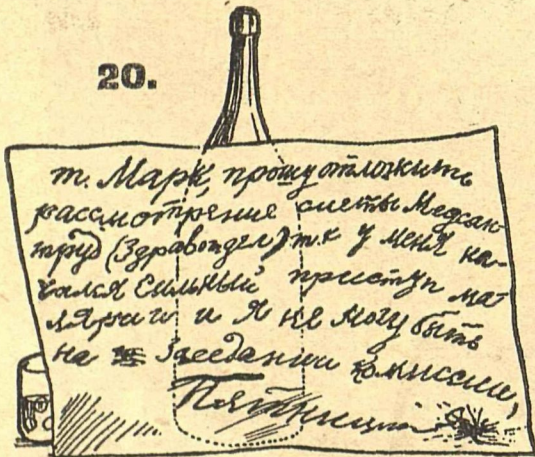 20.
т. Марк, прошу отложить
рассмотрение сметы Медсан-
труд (Здравотдел) т.к у меня на-
чался сильный приступ ма-
лярии и я не могу быть
на заседании комиссии,
Пятницкий